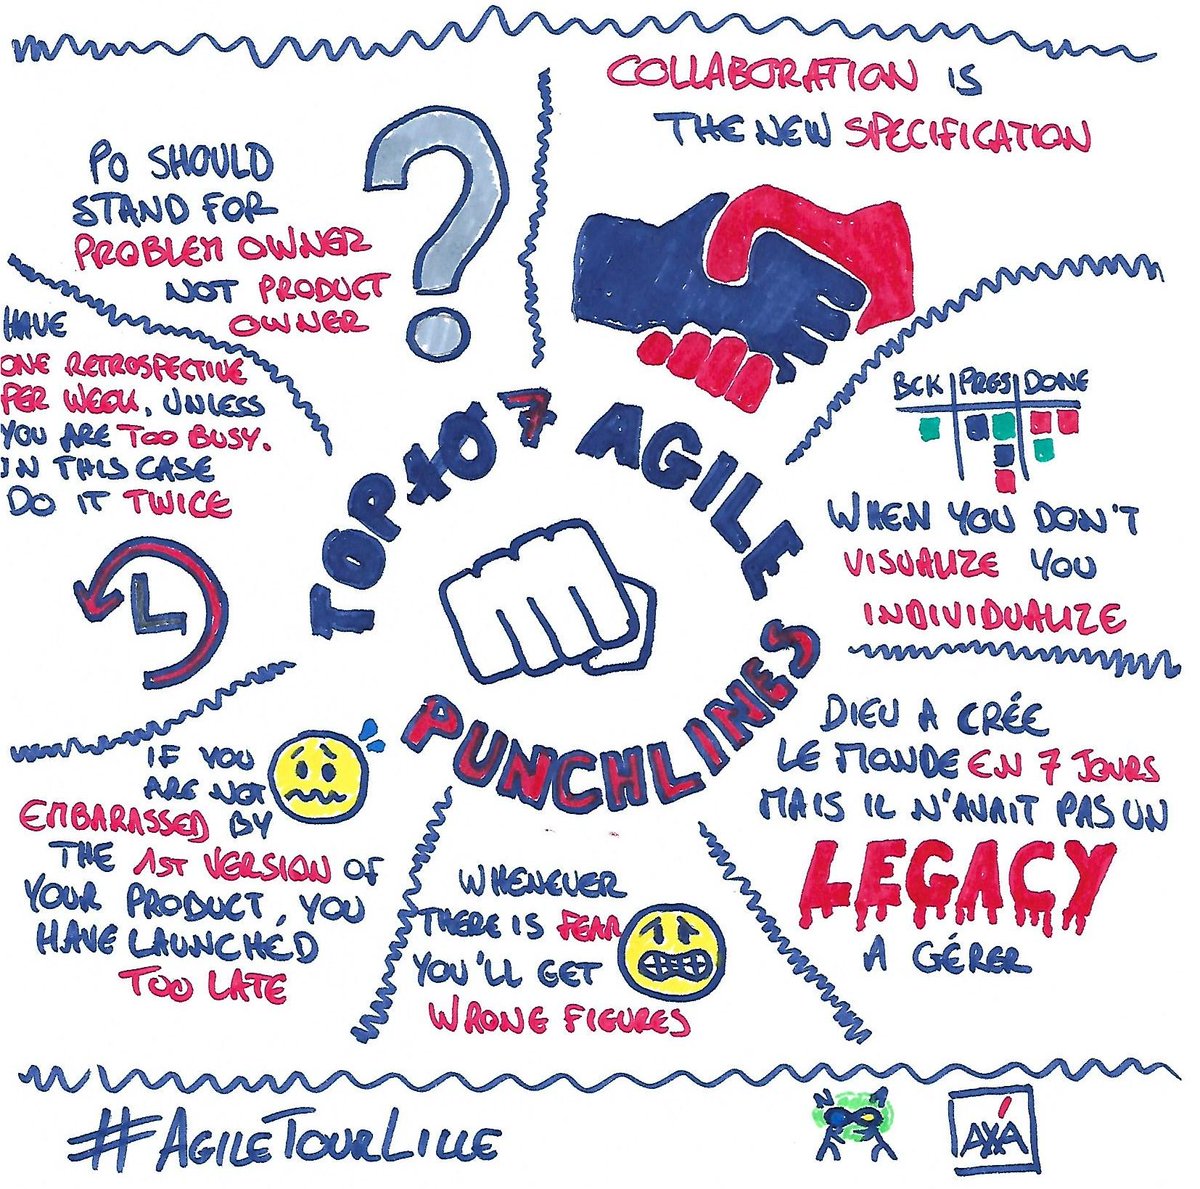 COLLABORATION IS
THE NEW SPECIFICATION
PO SHOULD
STAND FOR
PROBLEM OWNER
NOT PRODUCT
OWNER
HAVE
ONE RETROSPECTIVE
PER WEEK, UNLESS
YOU ARE TOO BUSY.
IN THIS CASE
DO IT TWICE
TOP 10 7 AGILE
PUNCHLINES
BCK PRGS DONE
WHEN YOU DON'T
VISUALIZE YOU
INDIVIDUALIZE
DIEU A CRÉE
LE MONDE EN 7 JOURS
MAIS IL N'AVAIT PAS UN
LEGACY
A GÉRER
IF YOU
ARE NOT
EMBARASSED BY
THE 1ST VERSION OF
YOUR PRODUCT, YOU
HAVE LAUNCHED
TOO LATE
WHENEVER
THERE IS FEAR
YOU'LL GET
WRONG FIGURES
#AGILETOURLILLE
AXA